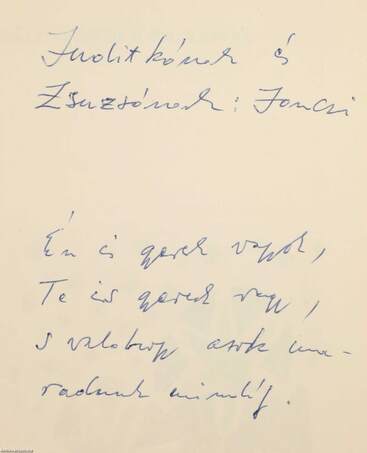 Juditkának és
Zsuzsának: Jancsi
Én is gyerek vagyok,
Te is gyerek vagy,
s valahogy azok ma-
radunk mindig.